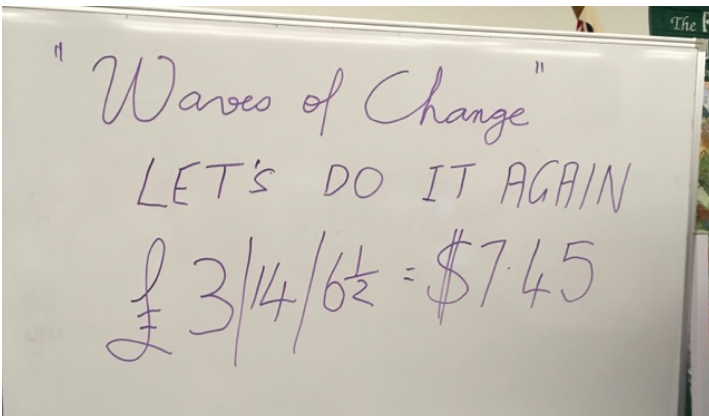 The
"Waves of Change"
LET'S DO IT AGAIN
£3/14/6½ = $7.45